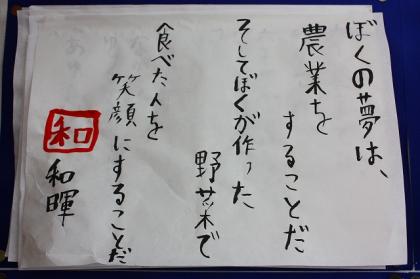 ぼくの夢は、
農業を
することだ
そしてぼくが作った
野菜で
食べた人を
笑顔にすることだ
和
和暉